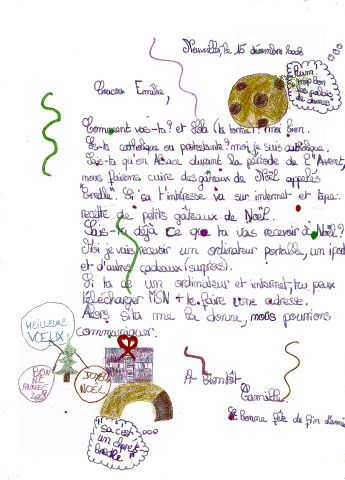 le 15 décembre 2008
Coucou Emilie,
Miam
trop bon
les
Comment vas-tu? et (la tortue)? moi bien.
Es-tu catholique ou protestante? moi je suis catholique.
Sais-tu qu'en Alsace durant la période de l'Avent,
nous faisons cuire des gâteaux de Noël appelés
"Bredle". Si sa t'intéresse va sur internet et tape:
recette de petits gateaux de Noël.
Sais-tu déjà ce que tu vas recevoir à Noël?
Moi je vais recevoir un ordinateur portable, un ipod
et d'autres cadeaux (surprises).
Si ta as un ordinateur et internet, tu peux
télécharger MSN + te faire une adresse.
Alors si tu me la donne, nous pourrions
communiquer.
MEILLEURS
VOEUX
BON
NE
ANNEE
JOYEUX
NOËL
A Bientôt
Camille
Bonne fête de fin d'année
"sa c'est
un
bredle"